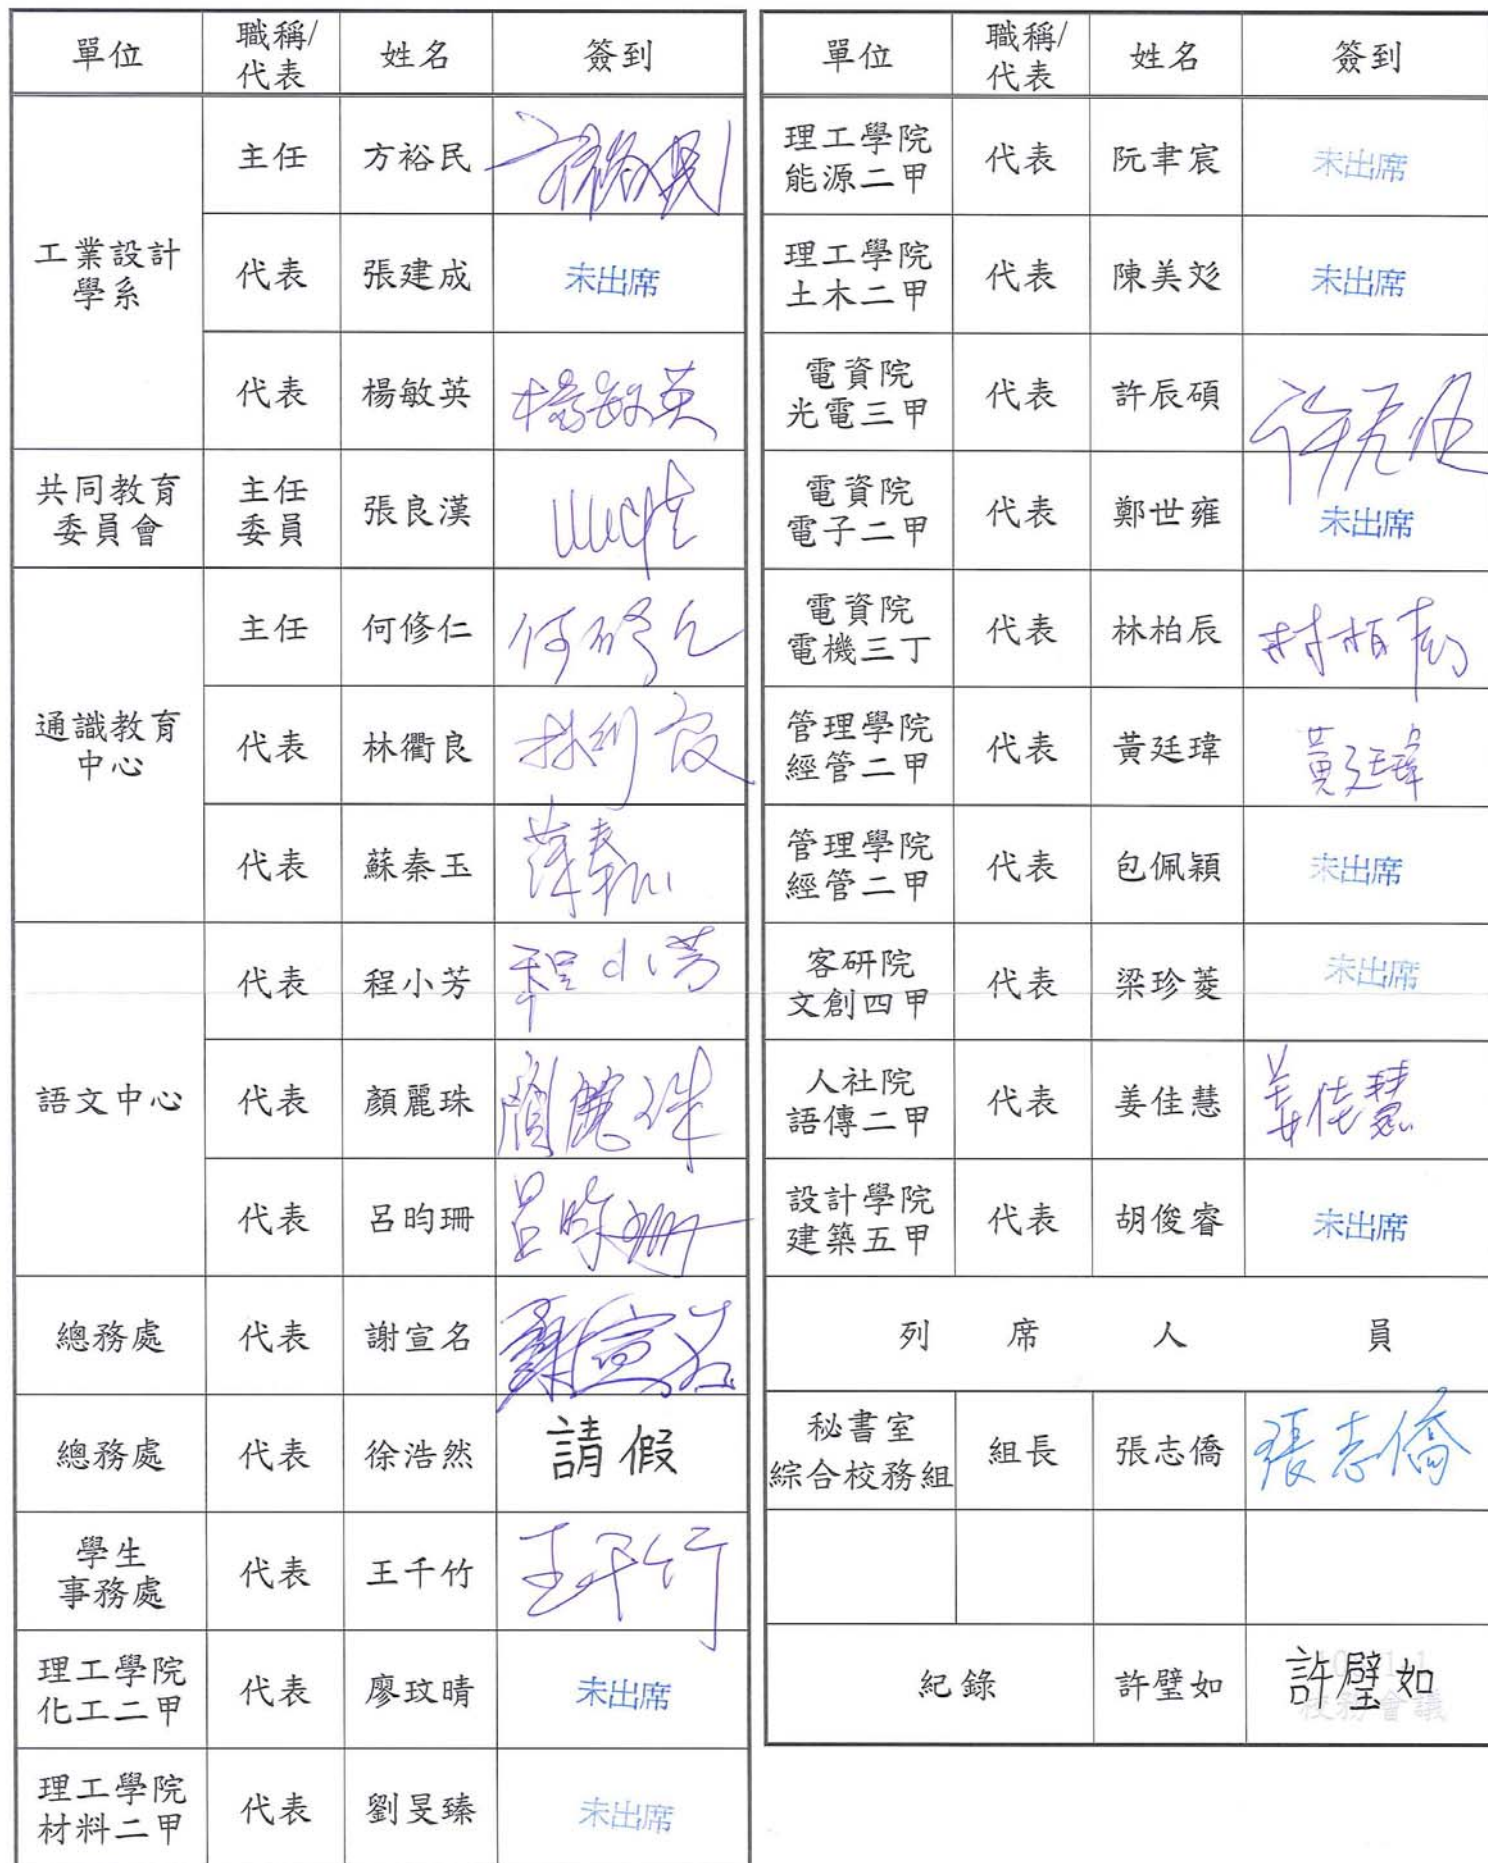 單位 職稱/代表 姓名 簽到
工業設計學系 主任 方裕民 方裕民
代表 張建成 未出席
代表 楊敏英 楊敏英
共同教育委員會 主任委員 張良漢
通識教育中心 主任 何修仁 何修仁
代表 林衢良
代表 蘇秦玉
語文中心 代表 程小芳 程小芳
代表 顏麗珠 顏麗珠
代表 呂昀珊 呂昀珊
總務處 代表 謝宣名 謝宣名
總務處 代表 徐浩然 請假
學生事務處 代表 王千竹 王千竹
理工學院化工二甲 代表 廖玟晴 未出席
理工學院材料二甲 代表 劉旻臻 未出席
單位 職稱/代表 姓名 簽到
理工學院能源二甲 代表 阮聿宸 未出席
理工學院土木二甲 代表 陳美彣 未出席
電資院光電三甲 代表 許辰碩
電資院電子二甲 代表 鄭世雍 未出席
電資院電機三丁 代表 林柏辰 林柏辰
管理學院經管二甲 代表 黃廷瑋 黃廷瑋
管理學院經管二甲 代表 包佩穎 未出席
客研院文創四甲 代表 梁珍菱 未出席
人社院語傳二甲 代表 姜佳慧 姜佳慧
設計學院建築五甲 代表 胡俊睿 未出席
列席人員
秘書室綜合校務組 組長 張志僑 張志僑
紀錄 許璧如 許璧如
校務會議